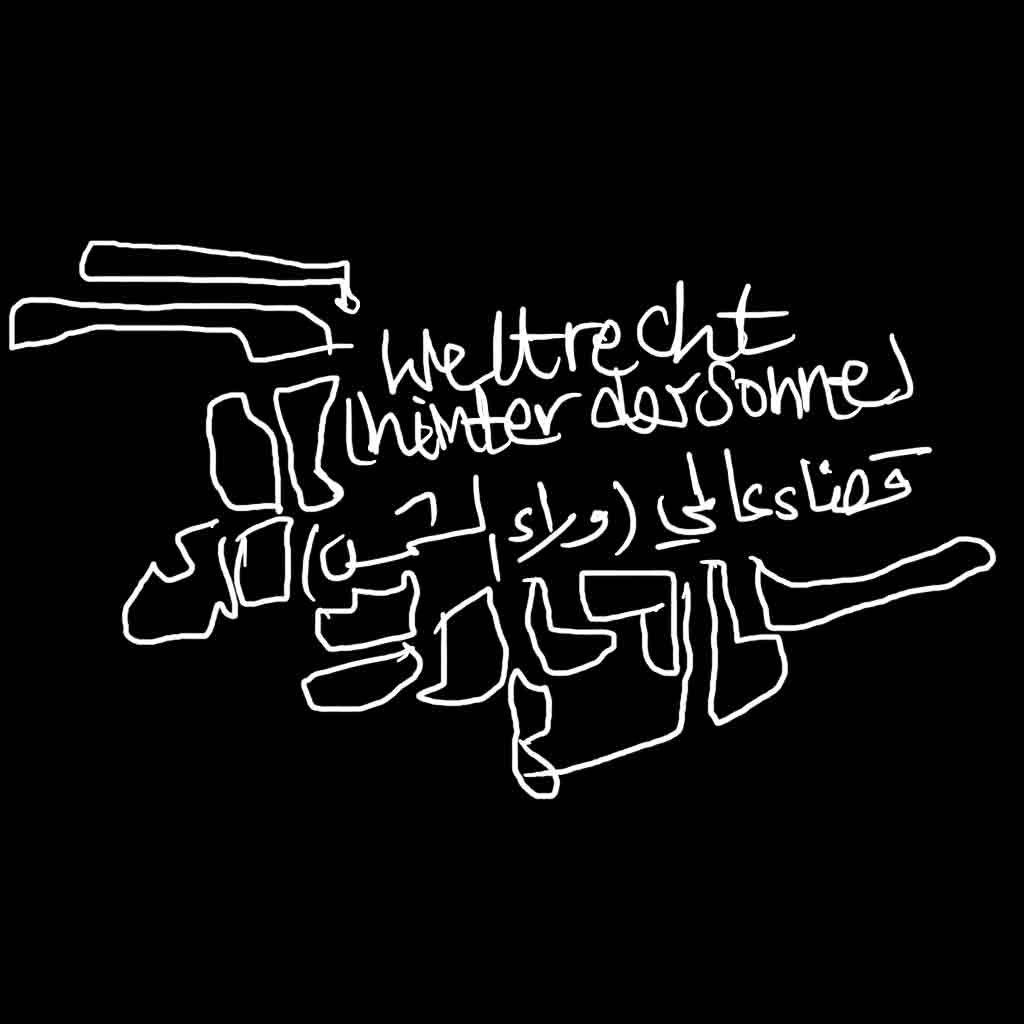 Weltrecht
(hinter der Sonne)
قضاء عالمي (وراء الشمس)